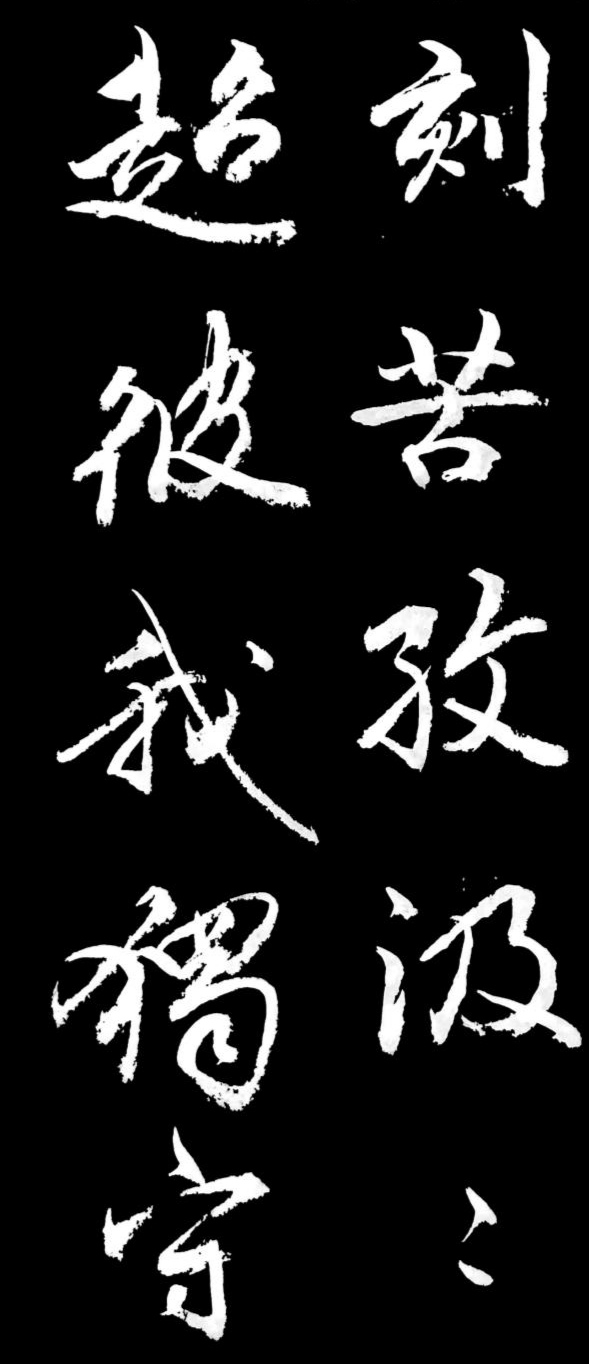 刻苦孜汲〻
超彼我獨守